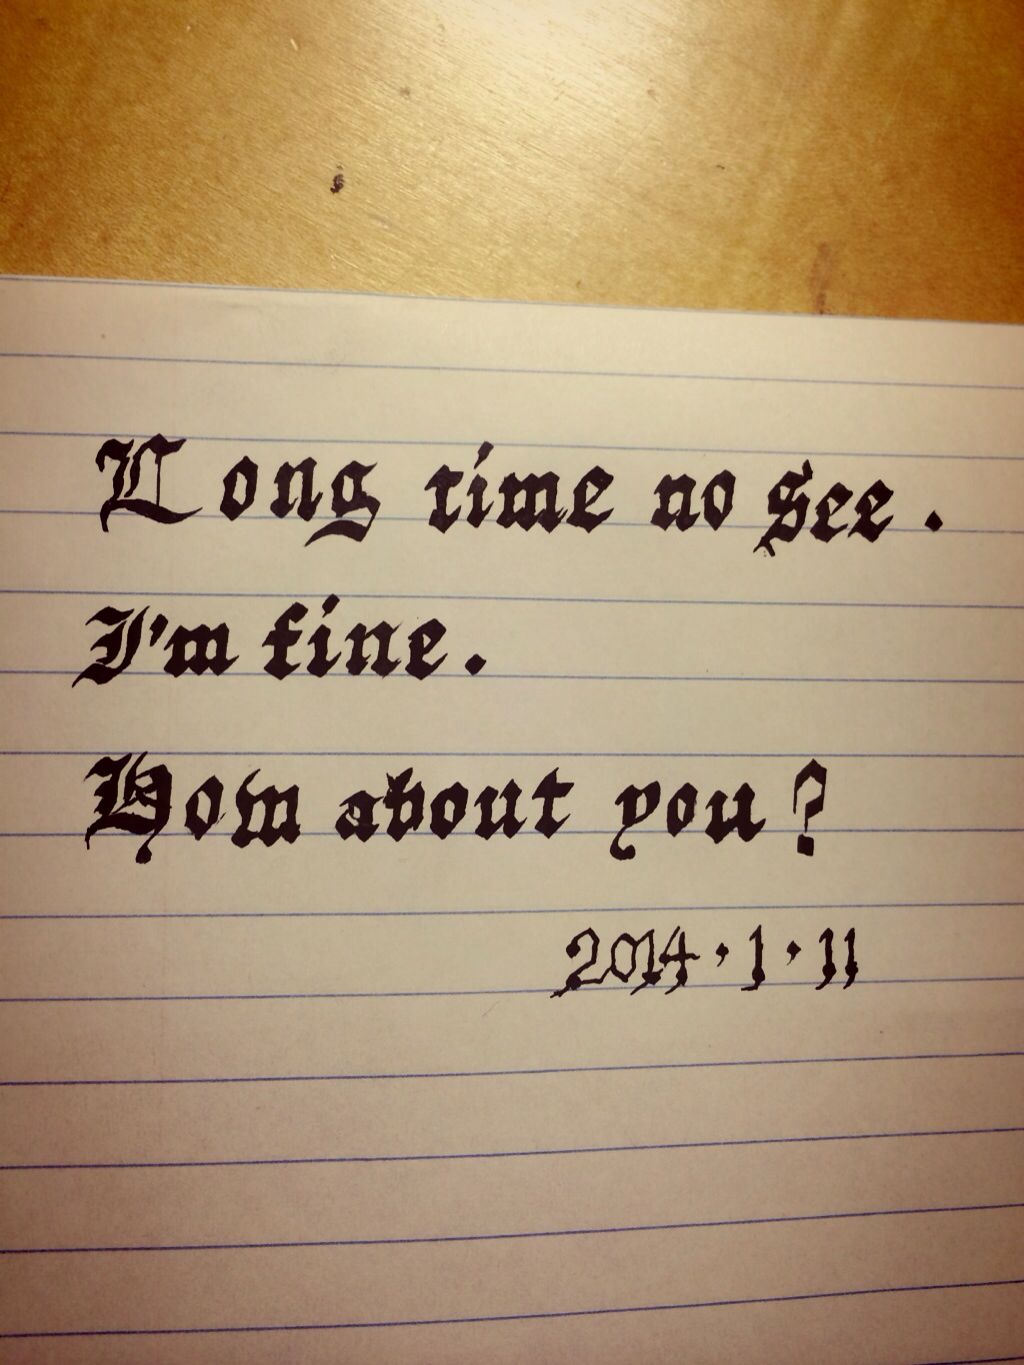 Long time no see.
I'm fine.
How about you?
2014·1·11